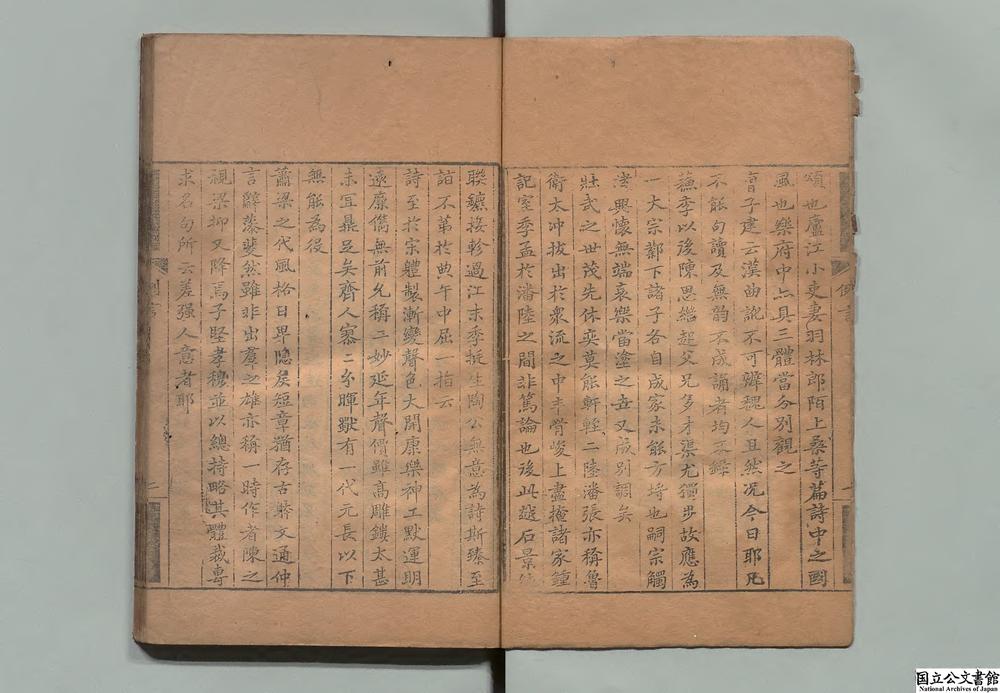 頌也廬江小吏妻羽林郎陌上桑等篇詩中之國
風也樂府中亦具三體當分別觀之
曹子建云漢曲訛不可辨魏人且然況今日耶凡
不能句讀及無韵不成誦者均不錄
蘇李以後陳思繼起父兄多才渠尤獨步故應為
一大宗鄴下諸子各自成家未能方埒也嗣宗觸
緒興懷無端哀樂當塗之世又成別調矣
壯武之世茂先休奕莫能軒輊二陸潘張亦稱魯
衛太冲拔出於眾流之中丰骨峻上盡掩諸家鍾
記室季孟於潘陸之間非篤論也後此越石景
聯鑣接軫過江末季挺生陶公無意為詩斯臻至
詣不第於典午中屈一指云
詩至於宋體製漸變聲色大開康樂神工默運明
遠廉儁無前允稱二妙延年聲價雖高雕鏤太甚
未宜鼎足矣齊人寥寥玄暉獨有一代元長以下
無能為役
蕭梁之代風格日卑隱矦短章猶存古體文通仲
言辭藻斐然雖非出羣之雄亦稱一時作者陳之
視梁抑又降焉子堅孝穆並以總持略其體裁專
求名句所云差强人意者耶
例言
二
国立公文書館
National Archives of Japan